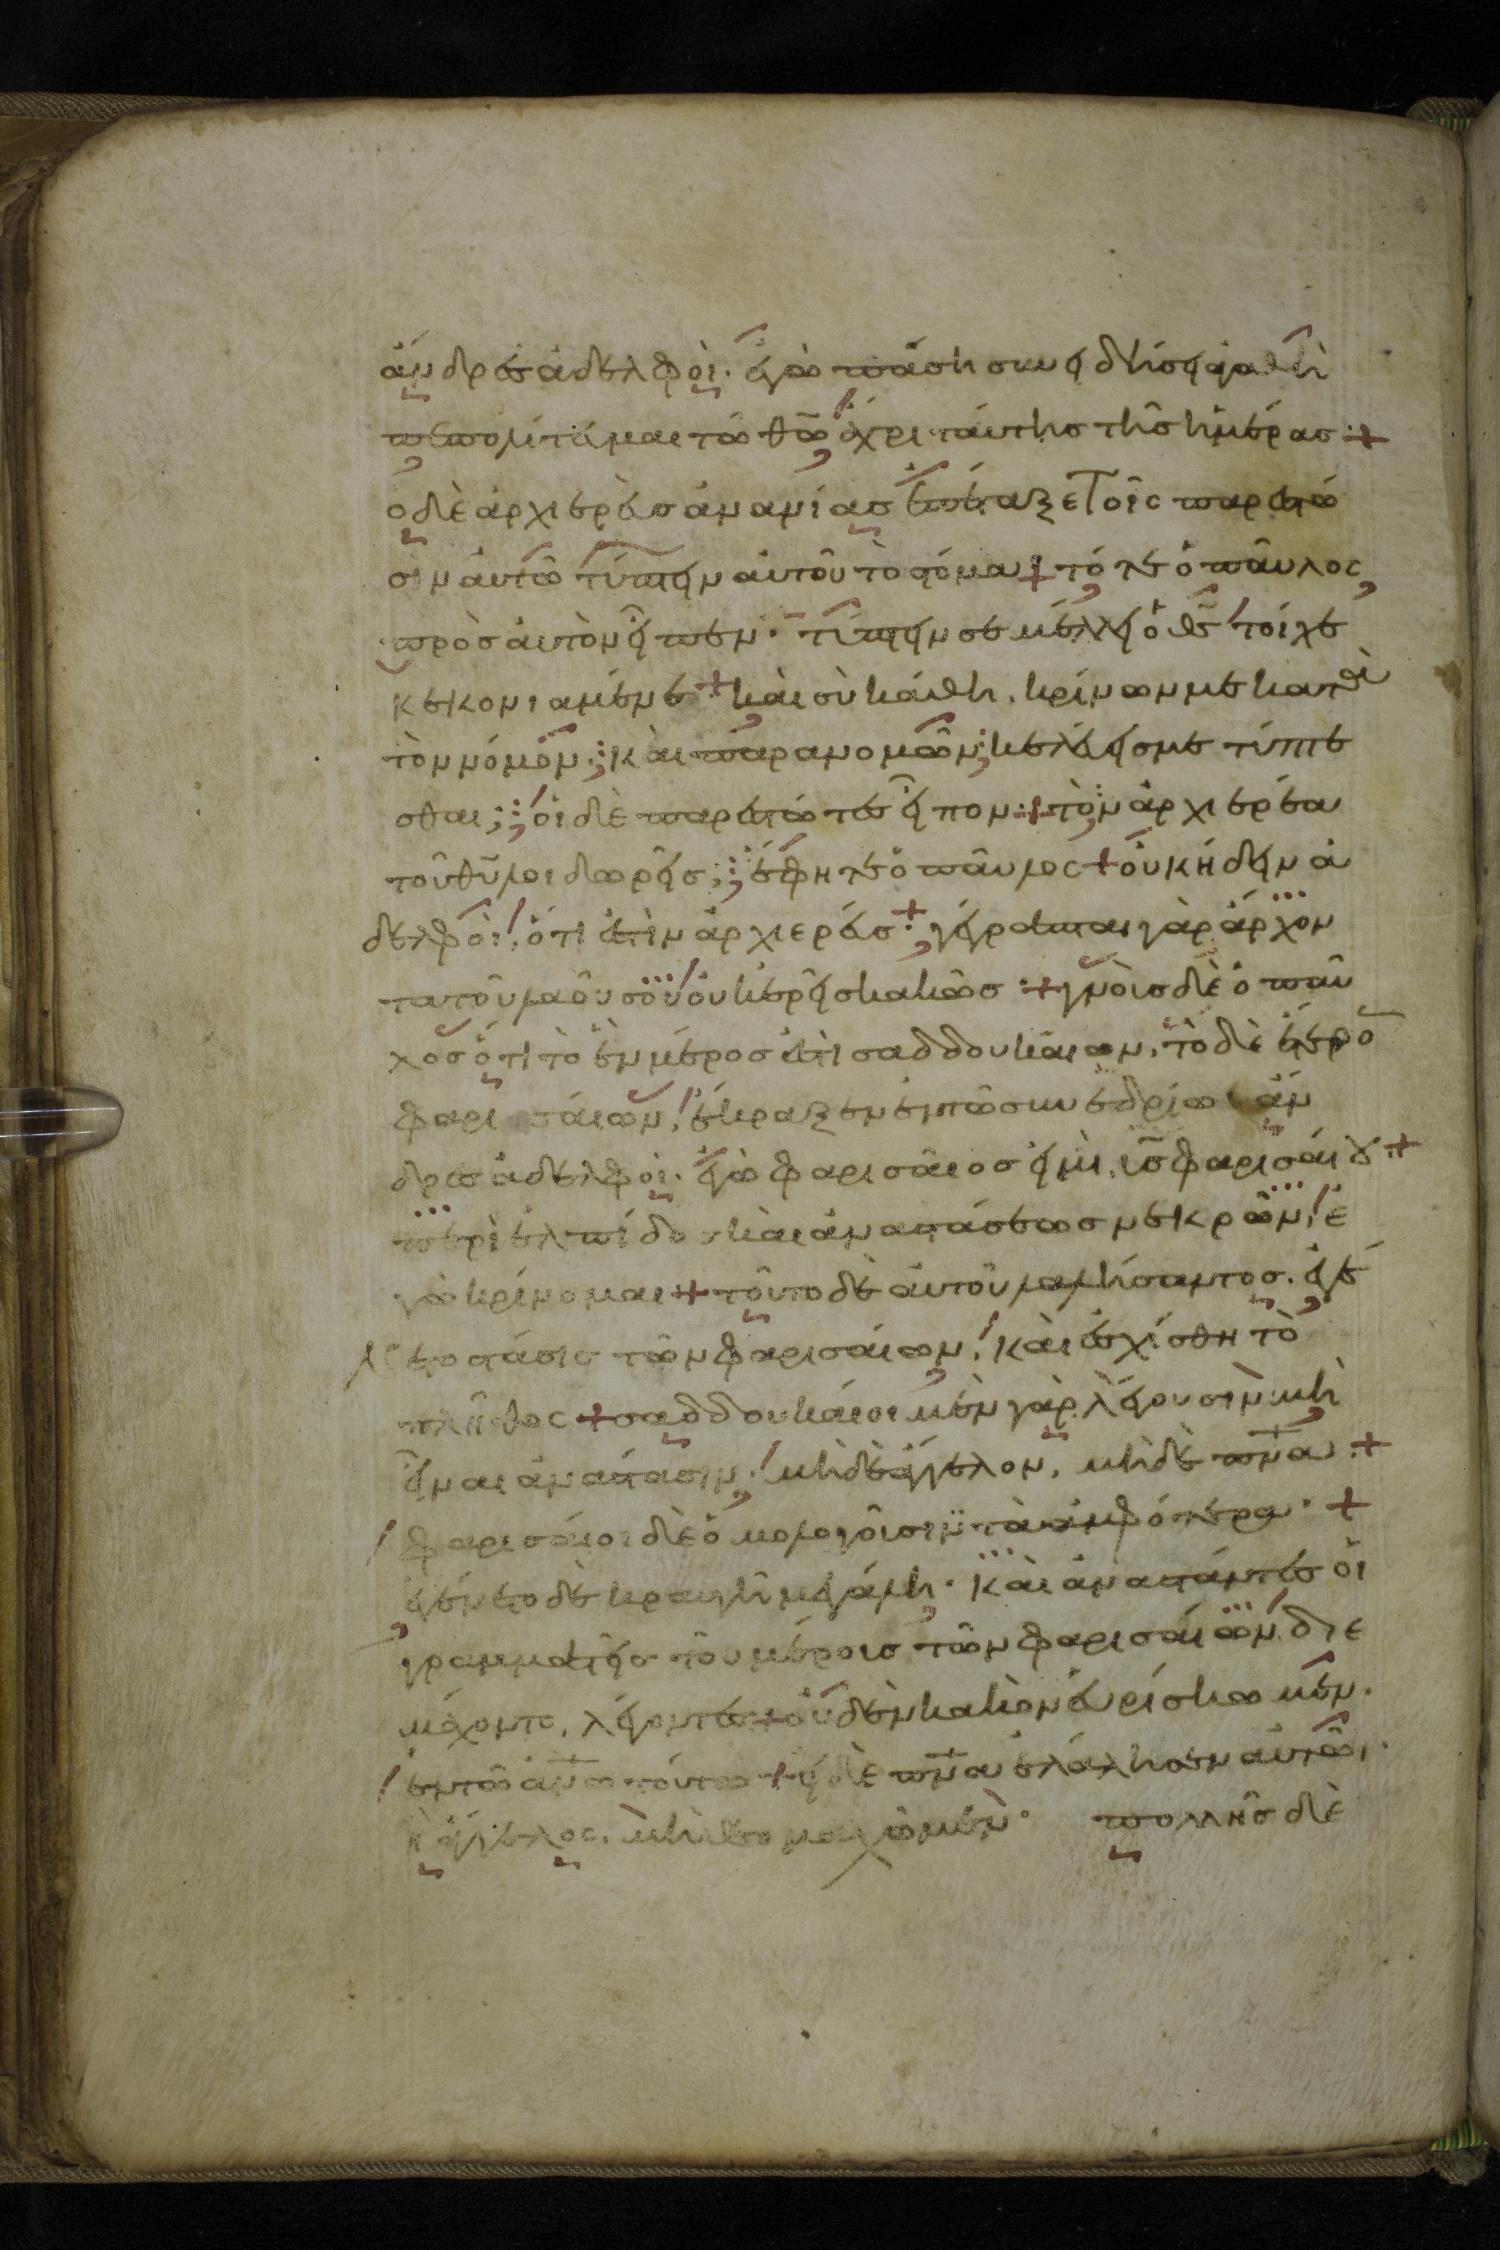 ἄνδρες ἀδελφοὶ. ἐγὼ πάση συνειδήσει ἀγαθῆ
πεπολίτευμαι τῶ θῶ ἄχρι ταύτης τῆς ἡμέρας·
ὁ δὲ ἀρχιερεὺς ἀνανίας ἐπέταξε τοῖς παρεστῶ
σιν αὐτῶ τύπτειν αὐτοῦ τὸ στόμα· τότε ὁ παῦλος
πρὸς αὐτὸν εἶπεν· τύπτειν σε μέλλει ὁ θς τοίχε
κεκονιαμένε· καὶ σὺ κάθη. κρίνων με κατὰ
τὸν νόμον; καὶ παρανομῶν; κελεύεις με τύπτε
σθαι; οἱ δὲ παρεστῶτες εἶπον· τὸν ἀρχιερέα
τοῦ θυ λοιδωρεῖς; ἔφη τε ὁ παῦλος οὐκ ἤδειν ἀ
δελφοὶ, ὅτι ἐστὶν ἀρχιερεύς· γέγραπται γὰρ ἄρχον
τα τοῦ λαοῦ σου οὐκ ἐρεῖς κακῶς· γνοὺς δὲ ὁ παῦ
λος ὅτι τὸ ἓν μέρος ἐστὶ σαδδουκαίων, τὸ δὲ ἕτερον
φαρισαίων, ἔκραξεν ἐν τῶ συνεδρίω ἄν
δρες ἀδελφοὶ. ἐγὼ φαρισαῖος εἰμὶ, υς φαρισαίου·
περὶ ἐλπίδος καὶ ἀναστάσεως νεκρῶν, ἐ
γὼ κρίνομαι· τοῦτο δὲ αὐτοῦ λαλήσαντος. ἐγέ
νετο στάσις τῶν φαρισαίων, καὶ ἐσχίσθη τὸ
πλῆθος· σαδδουκαίοι μὲν γὰρ λέγουσιν μὴ
εἶναι ἀνάστασιν, μηδὲ ἄγγελον, μηδὲ πνα·
φαρισαίοι δὲ ὁμολογοῦσιν τὰ ἀμφότερα·
ἐγένετο δὲ κραυγὴ μεγάλη· καὶ ἀναστάντες οἱ
γραμματεῖς τοῦ μέρους τῶν φαρισαίων διε
μάχοντο, λέγοντες· οὐδὲν κακὸν εὑρίσκωμεν.
ἐν τῶ ανω τούτω· εἰ δὲ πνα ἐλάλησεν αὐτῶ,
ἢ ἄγγελος, μὴ θεομαχῶμεν· πολλῆς δὲ